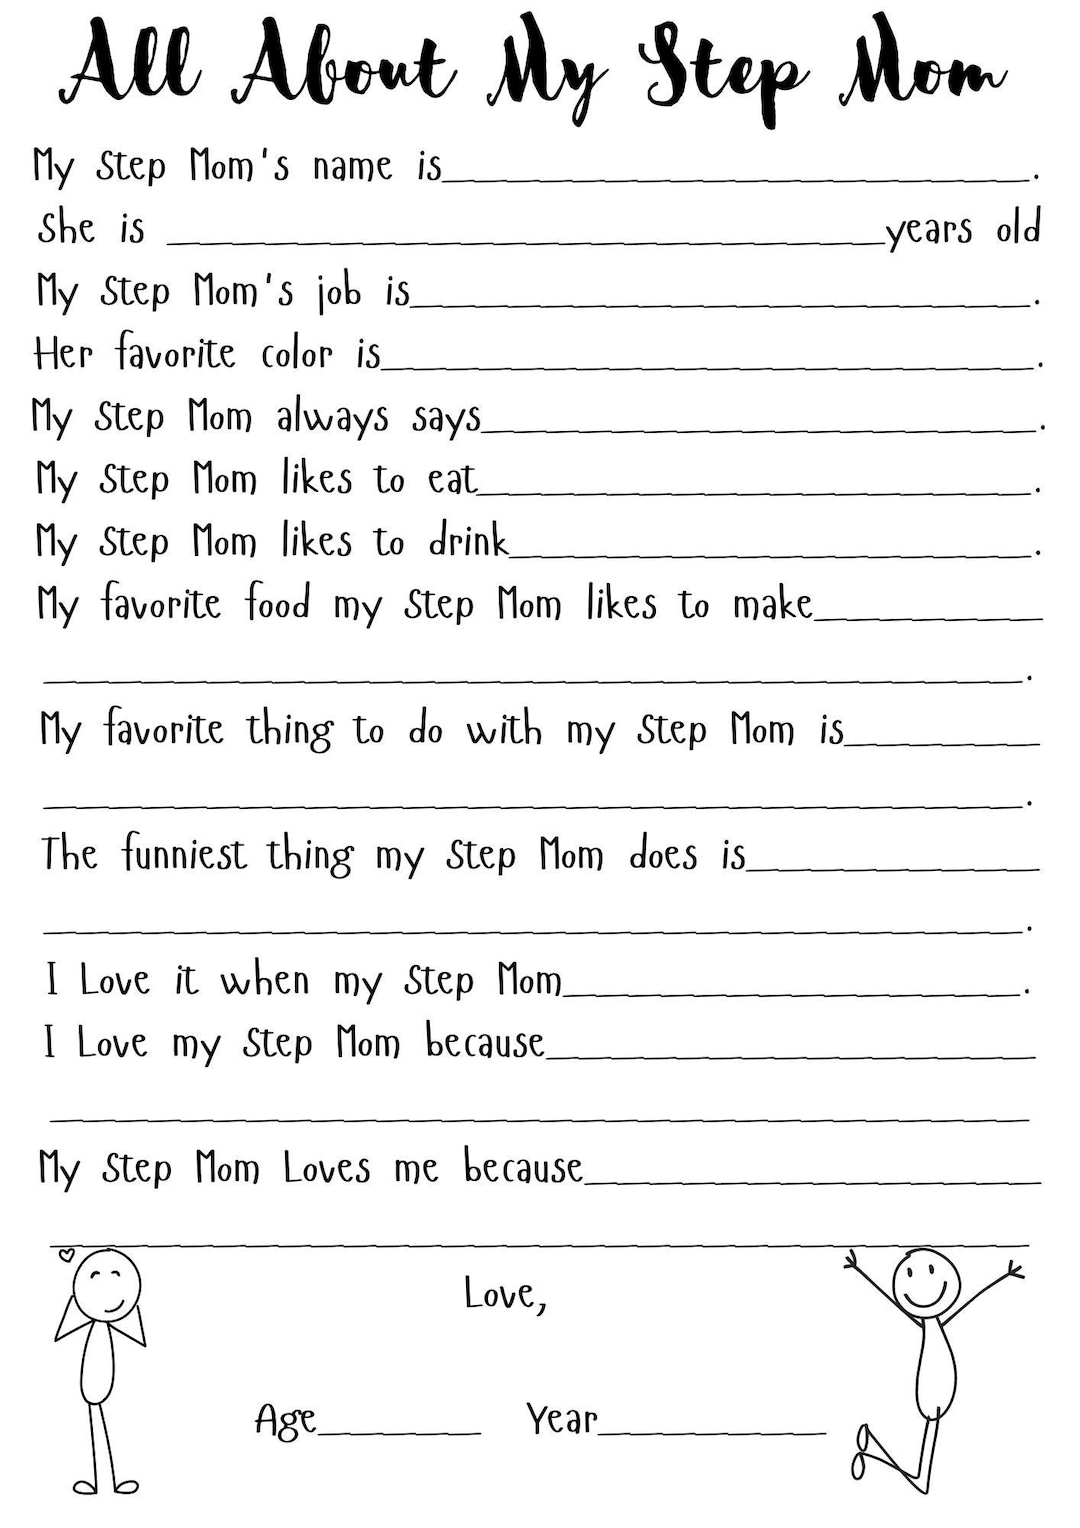 All About My Step Mom
My Step Mom's name is____________________.
She is ____________________years old
My Step Mom's job is____________________.
Her favorite color is____________________.
My Step Mom always says____________________.
My Step Mom likes to eat____________________.
My Step Mom likes to drink____________________.
My favorite food my Step Mom likes to make__________
____________________.
My favorite thing to do with my Step Mom is__________
____________________.
The funniest thing my Step Mom does is__________
____________________.
I Love it when my Step Mom____________________.
I Love my Step Mom because____________________
____________________
My Step Mom Loves me because____________________
____________________
Love,
Age__________ Year__________